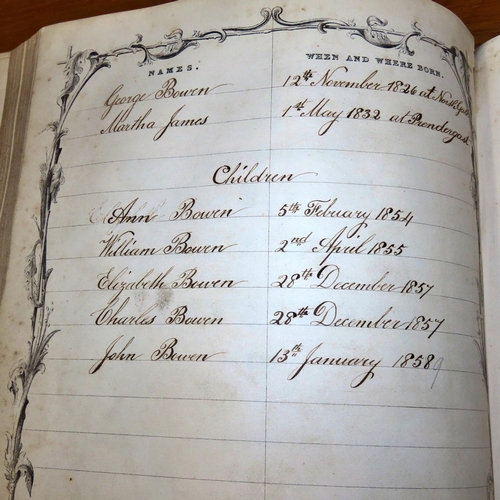 NAMES. WHEN AND WHERE BORN.
George Bowen 12th November 1826 at North Gate
Martha James 1st May 1832 at Prendergast
Children
Ann Bowen 5th Febuary 1854
William Bowen 2nd April 1855
Elizabeth Bowen 28th December 1857
Charles Bowen 28th December 1857
John Bowen 13th January 1858 9